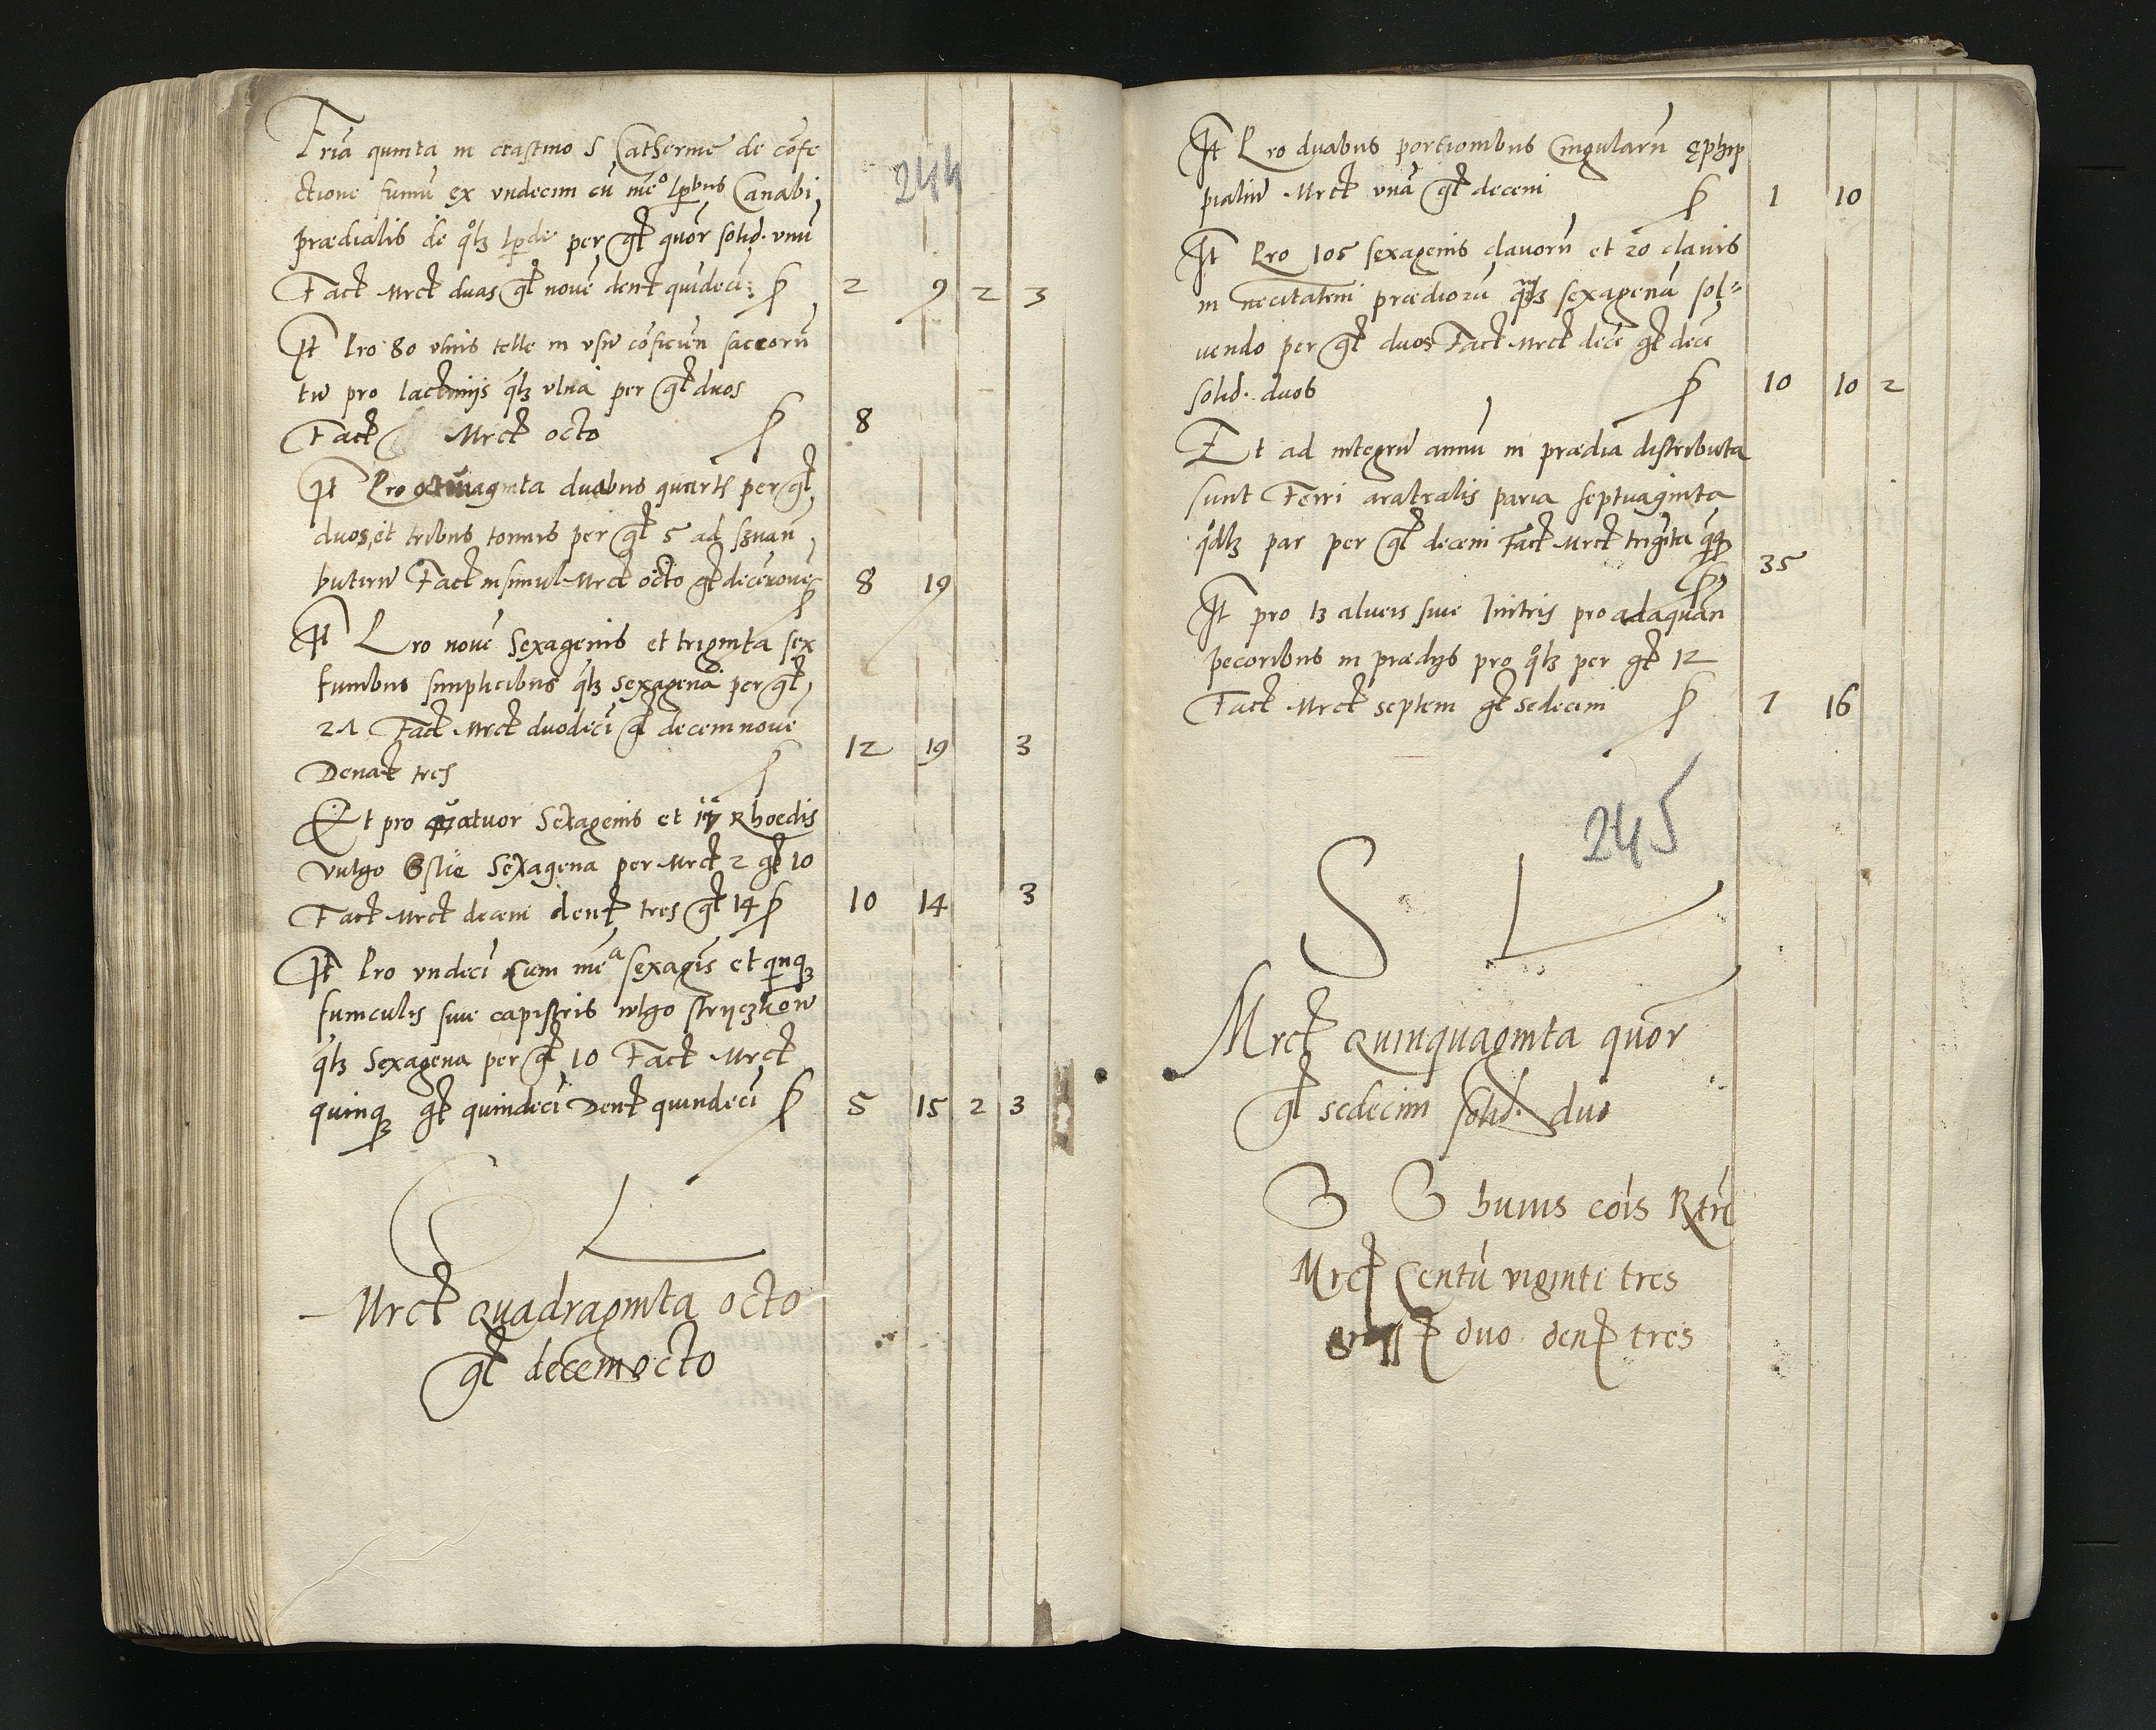 244
Fria quinta in crastino S Catherine de cōfe
ctione funiū ex vndecim cū meo lpbus Canabi
prædialis de qlz lpde per gt quor solid. vnū
Fact Mrct duas gt novē dent quīdeci 2 9 2 3
It Pro 80 vlnis telle in vsū cōficien saccorū
tū pro lacticinijs qlz vlna per gt duos
Fact Mrct octo 8
It Pro octuaginta duabus quartis per gt
duos, et tribus tonnis per gt 5 ad szuan
butirū Fact insimul Mrct octo gt decēnovē 8 19
It Pro nouē Sexagenis et triginta sex
funibus simplicibus qlz sexagena per gt
21 Fact Mrct duodeci gt decemnovē
Denat tres 12 19 3
Et pro quatuor Sexagenis et 17 Rhoedis
vulgo Oslie Sexagena per Mrct 2 gt 10
Fact Mrct decem dent tres gt 14 10 14 3
It Pro vndeci cum mea sexagis et qinqz
funiculis siue capistris wlgo stryczkow
qlz Sexagena per gt 10 Fact Mrct
quinqz gt quindeci Dent quindeci 5 15 2 3
S L
Mrct quadraginta octo
gt decemocto
It Pro duabus portionibus Cingularū ephip
pialiū Mrct vnā gt decem 1 10
It Pro 105 sexagenis clauorū et 20 clavis
in necitatem prædiorū qlz sexagenā sol=
uendo per gt duos Fact Mrct decē gt decē
solid. duos 10 10 2
Et ad integrū annū in prædia distributa
sunt Ferri aratralis paria septuaginta
qdlz par per gt decem Fact Mrct trigīta qnqz 35
It pro 13 alueis siue lintris pro adaquan
pecoribus in prædijs pro qlz per gt 12
Fact Mrct septem gt sedecim 7 16
245
S L
Mrct Quinquaginta quor
gt sedecim solid. duo
S S huius cōis Rtri
Mrct Centū viginti tres
duo dent tres